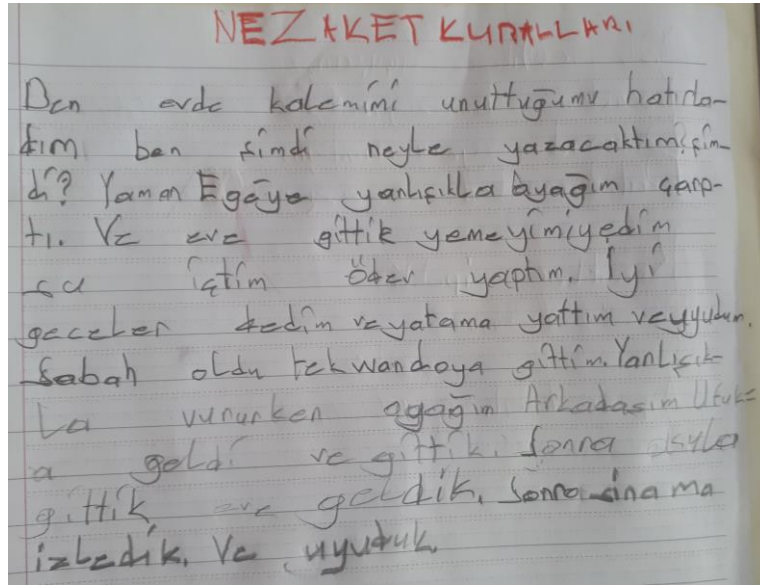 NEZAKET KURALLARI
Ben evde kalemimi unuttuğumu hatırla-
dım ben şimdi neyle yazacaktım şim-
di? Yaman Egeye yanlışıkla ayağım çarp-
tı. Ve eve gittik yemeyimiyedim
su içtim ödev yaptım. İyi
geceler dedim ve yatama yattım veuyudum.
Sabah oldu tekwandoya gittim. Yanlışık-
la vururken ayağım Arkadaşım Ufuk-
a geldi ve gittik. Sonra
gittik eve geldik. Sonra sinama
izledik. Ve uyuduk.